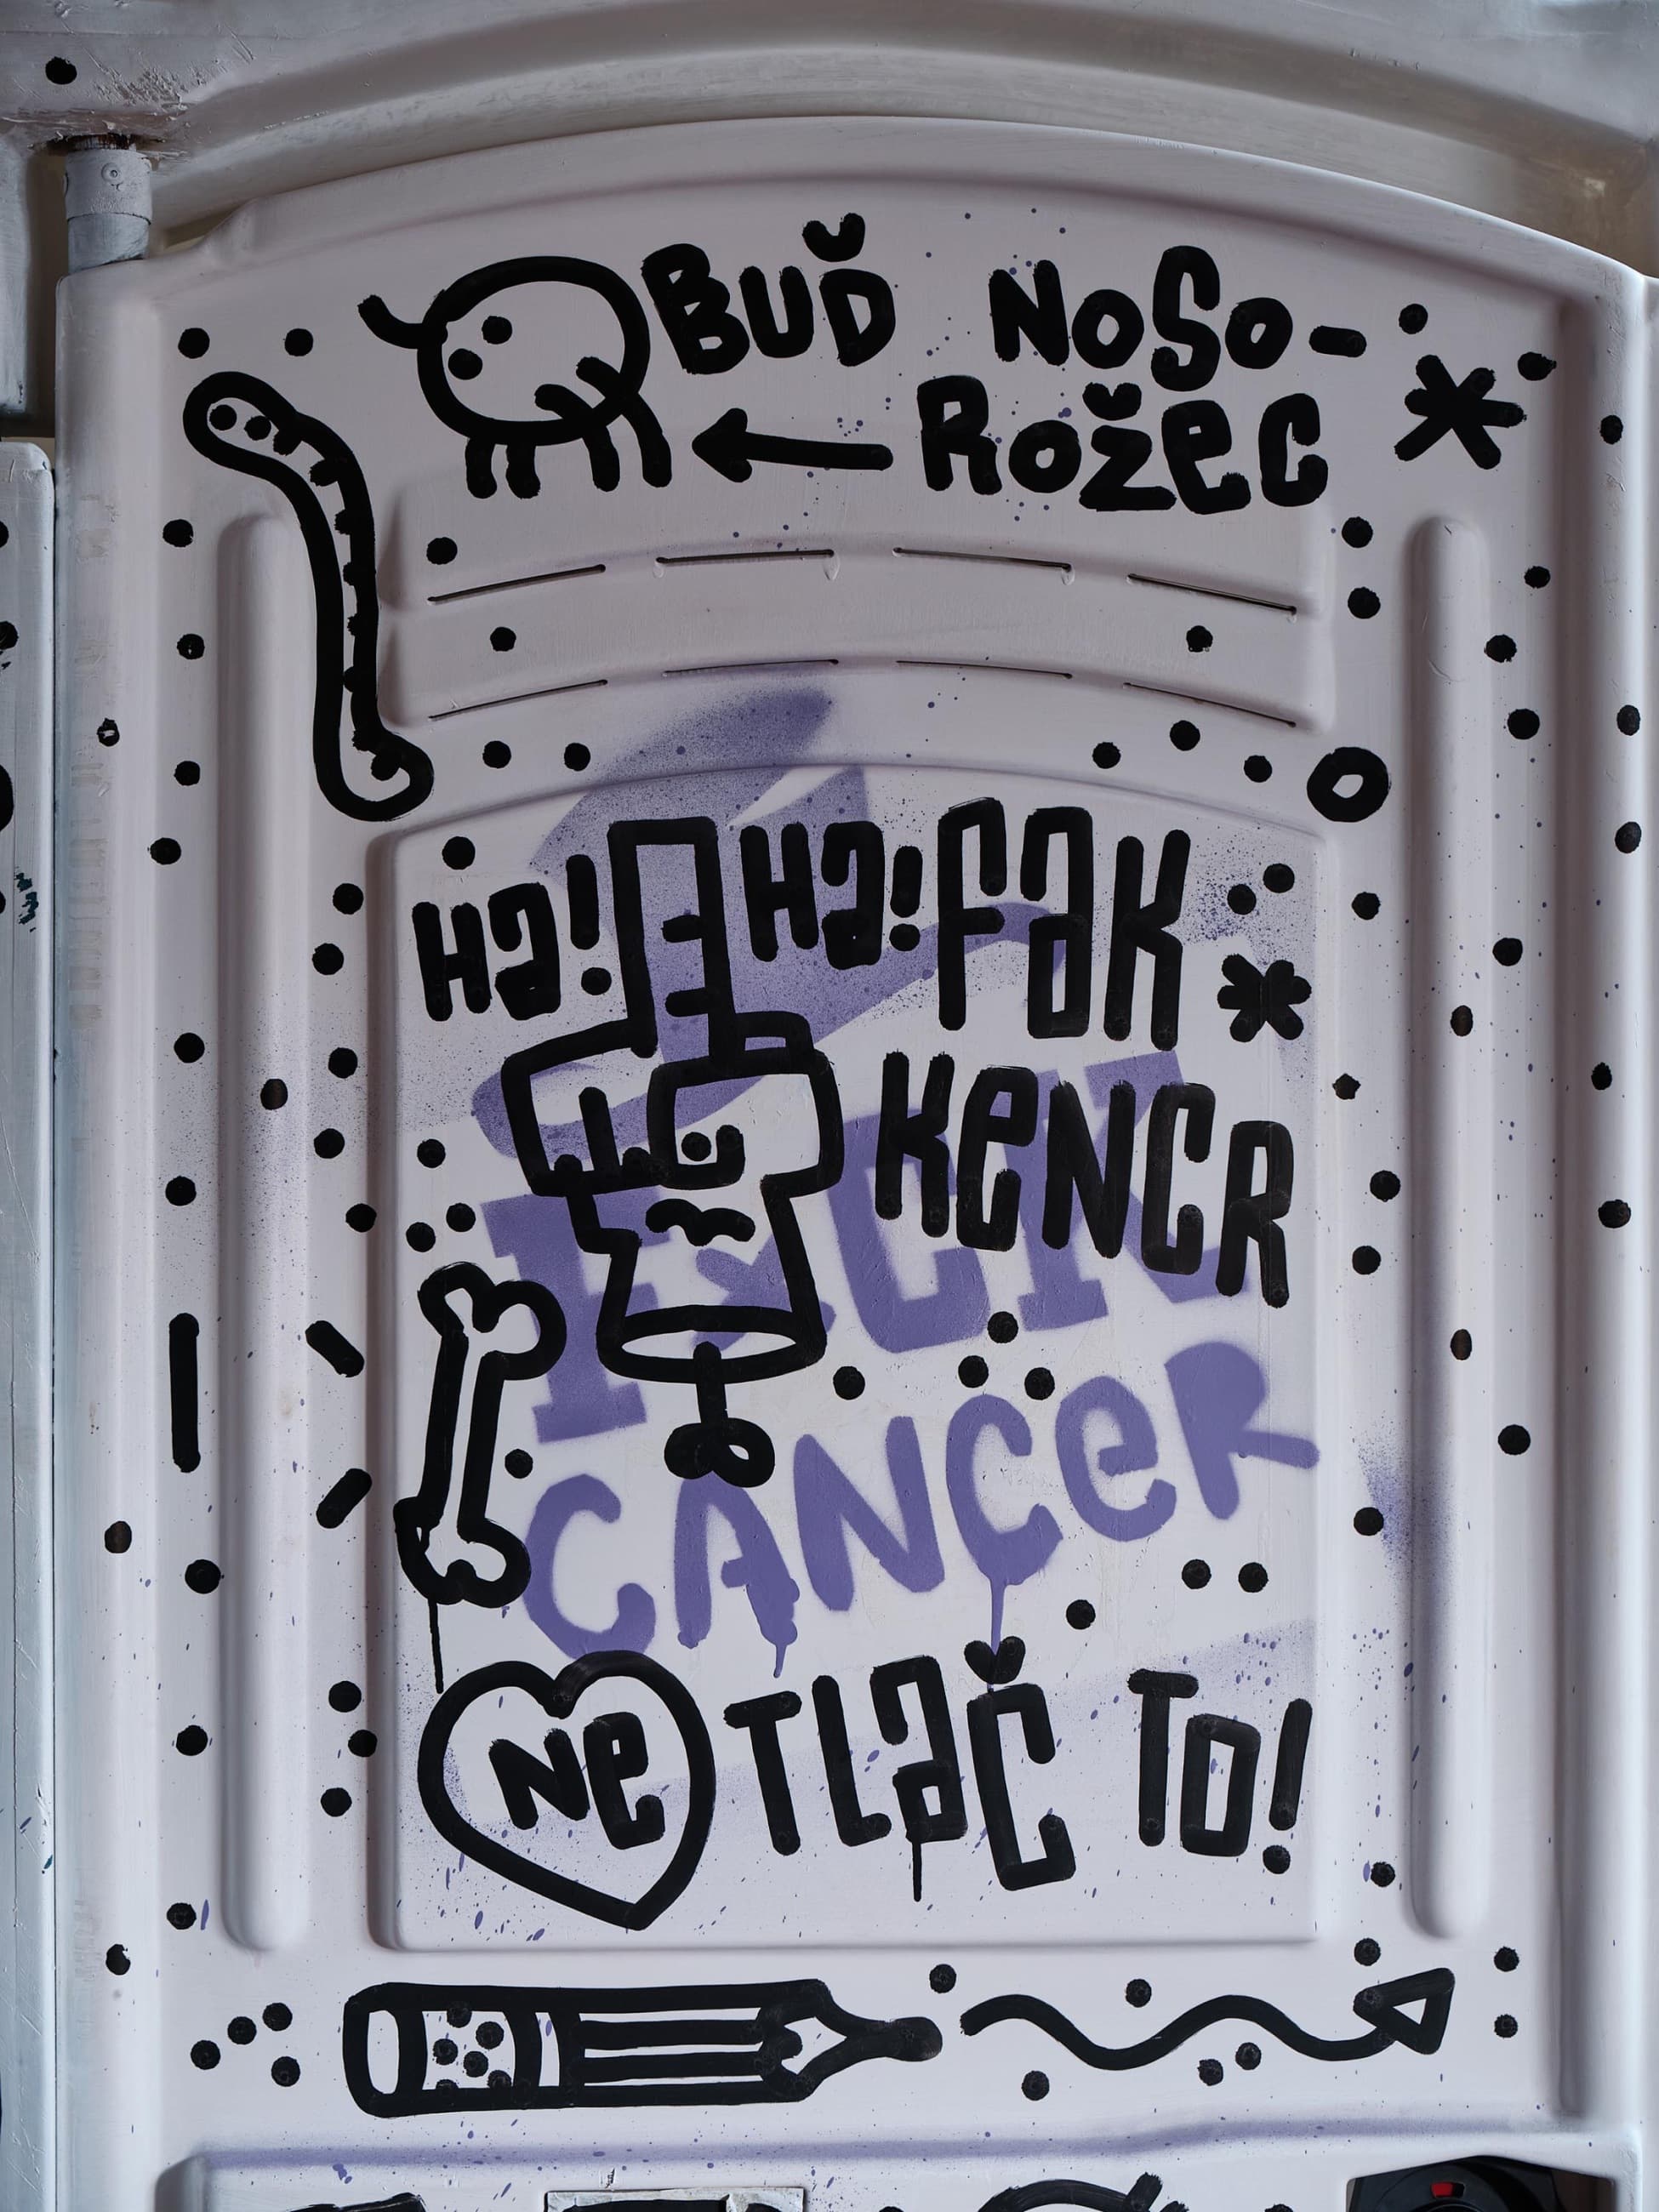 BUĎ NoSo-
RožeC
Ha! Ha! FaK
KeNCR
F*CK
CANCeR
Ne TLač To!